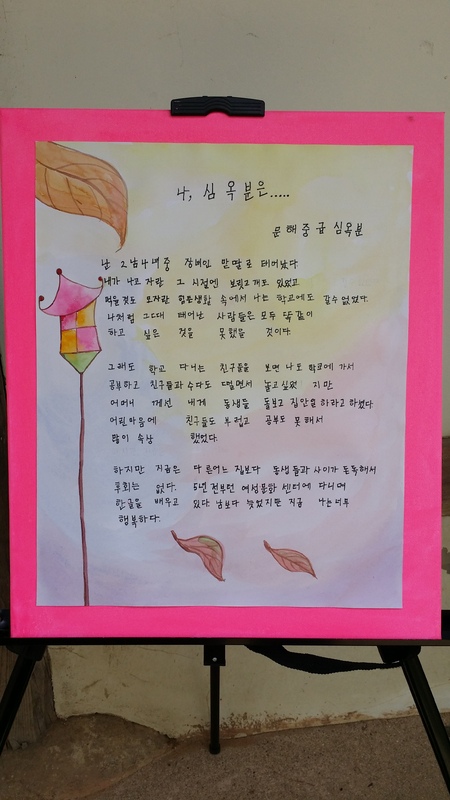 나, 심옥분은.....
문해중급 심옥분
난 2남4녀중 장녀인 맏딸로 태어났다
내가 나고 자랄 그 시절엔 보릿고개도 있었고
먹을것도 모자란 힘든생활 속에서 나는 학교에도 갈수없었다.
나처럼 그때 태어난 사람들은 모두 똑같이
하고 싶은 것을 못했을 것이다.
그래도 학교 다니는 친구들을 보면 나도 학교에 가서
공부하고 친구들과 수다도 떨면서 놀고싶었 지만
어머니 께선 내게 동생들 돌보고 집안일 하라고 하셨다
어린마음에 친구들도 부럽고 공부도 못해서
많이 속상 했었다.
하지만 지금은 다른어느 집보다 동생들과 사이가 돈독해서
후회는 없다. 5년 전부턴 여성문화 센터에 다니며
한글을 배우고 있다 남보다 늦었지만 지금 나는너무
행복하다.